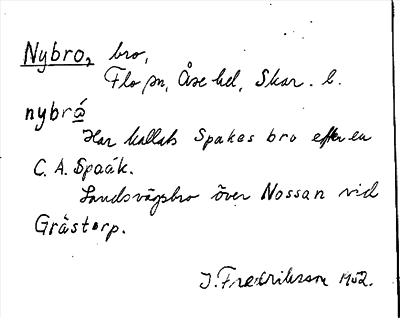 Nybro, bro,
Flo sn, Åse hd, Skar. l.
nybrώ̲
Har kallats Spakes bro efter en
C. A. Spaák.
Landsvägsbro över Nossan vid
Grästorp.
J. Fredriksson